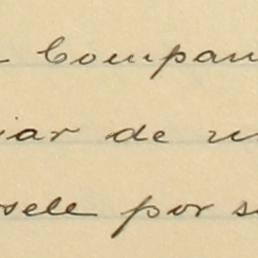 Compan
iar de
sele por s